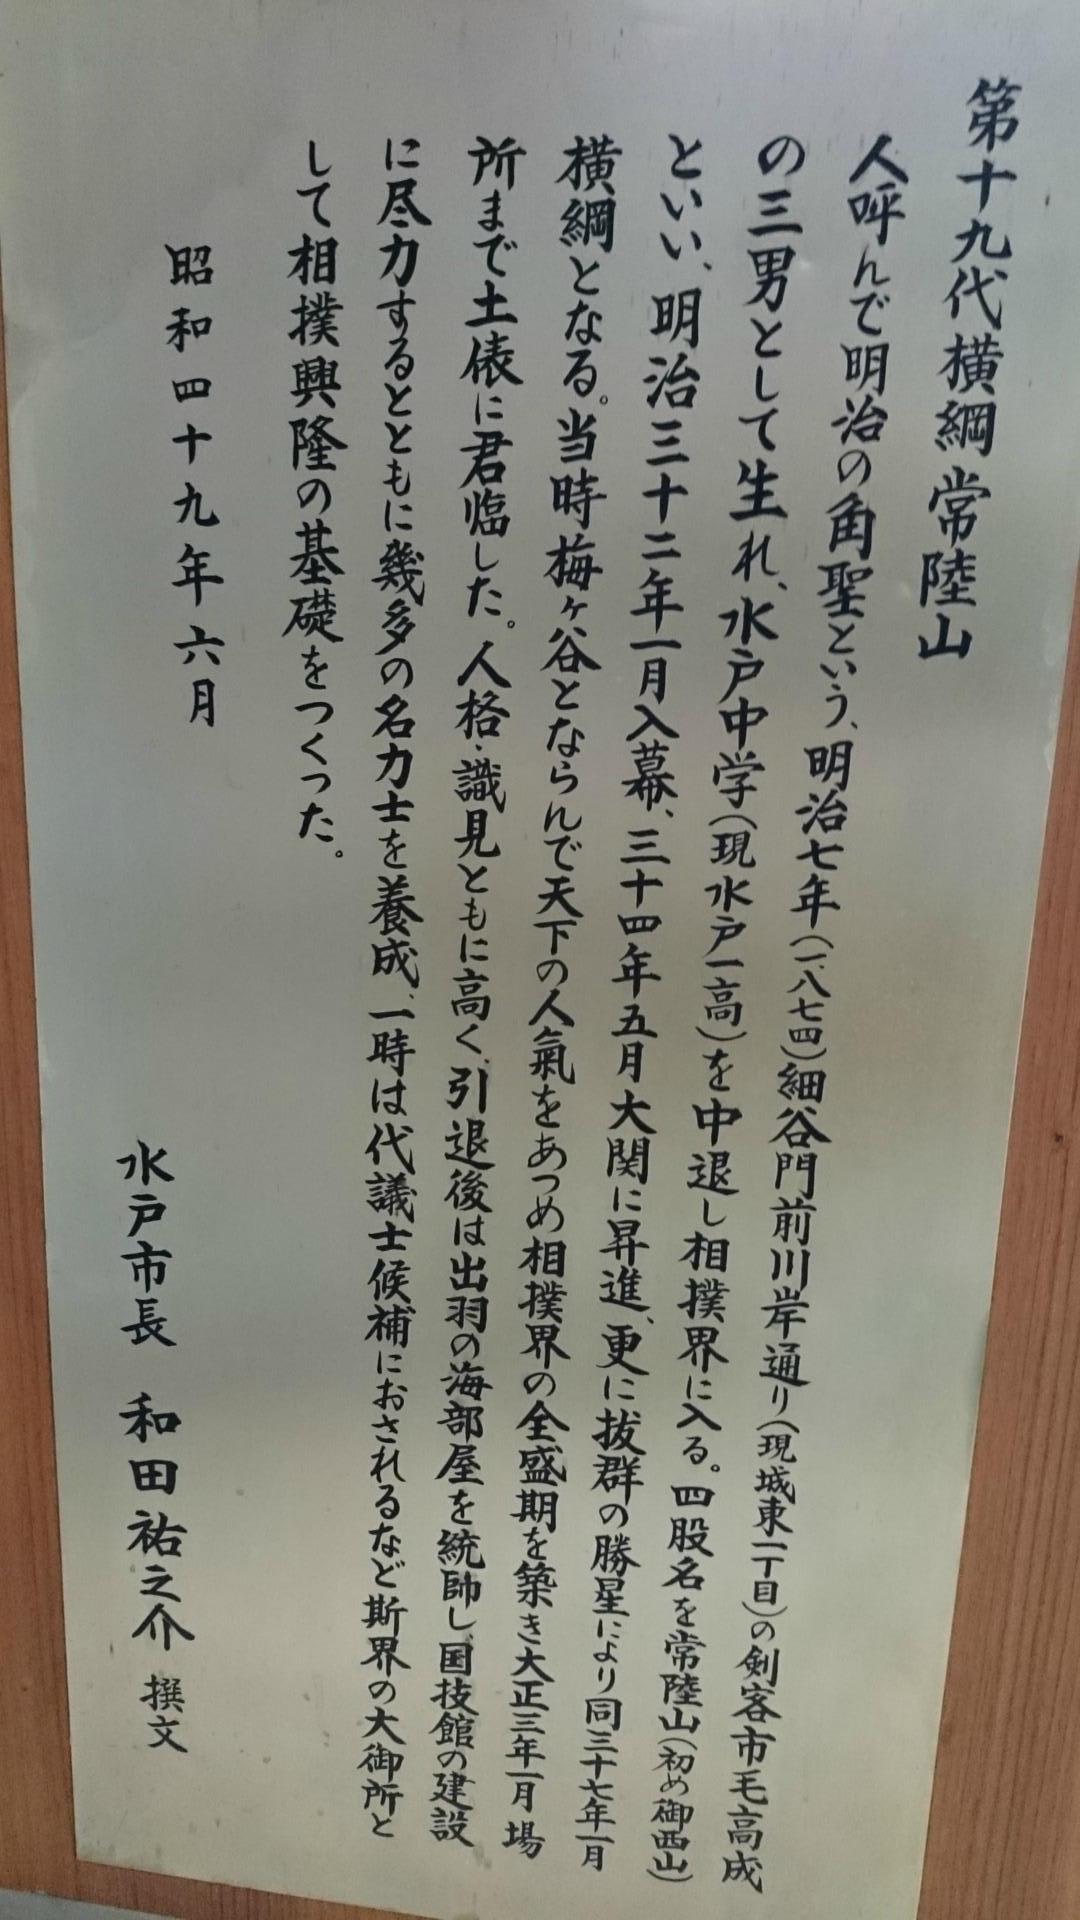 第十九代横綱常陸山
人呼んで明治の角聖という、明治七年(一八七四)細谷門前川岸通り(現城東一丁目)の剣客市毛高成
の三男として生れ、水戸中学(現水戸一高)を中退し相撲界に入る。四股名を常陸山(初め御西山)
といい、明治三十二年一月入幕、三十四年五月大関に昇進、更に抜群の勝星により同三十七年一月
横綱となる。当時梅ヶ谷とならんで天下の人氣をあつめ相撲界の全盛期を築き大正三年一月場
所まで土俵に君臨した。人格・識見ともに高く、引退後は出羽の海部屋を統帥し国技館の建設
に尽力するとともに幾多の名力士を養成、一時は代議士候補におされるなど斯界の大御所と
して相撲興隆の基礎をつくった。
昭和四十九年六月
水戸市長 和田祐之介 撰文